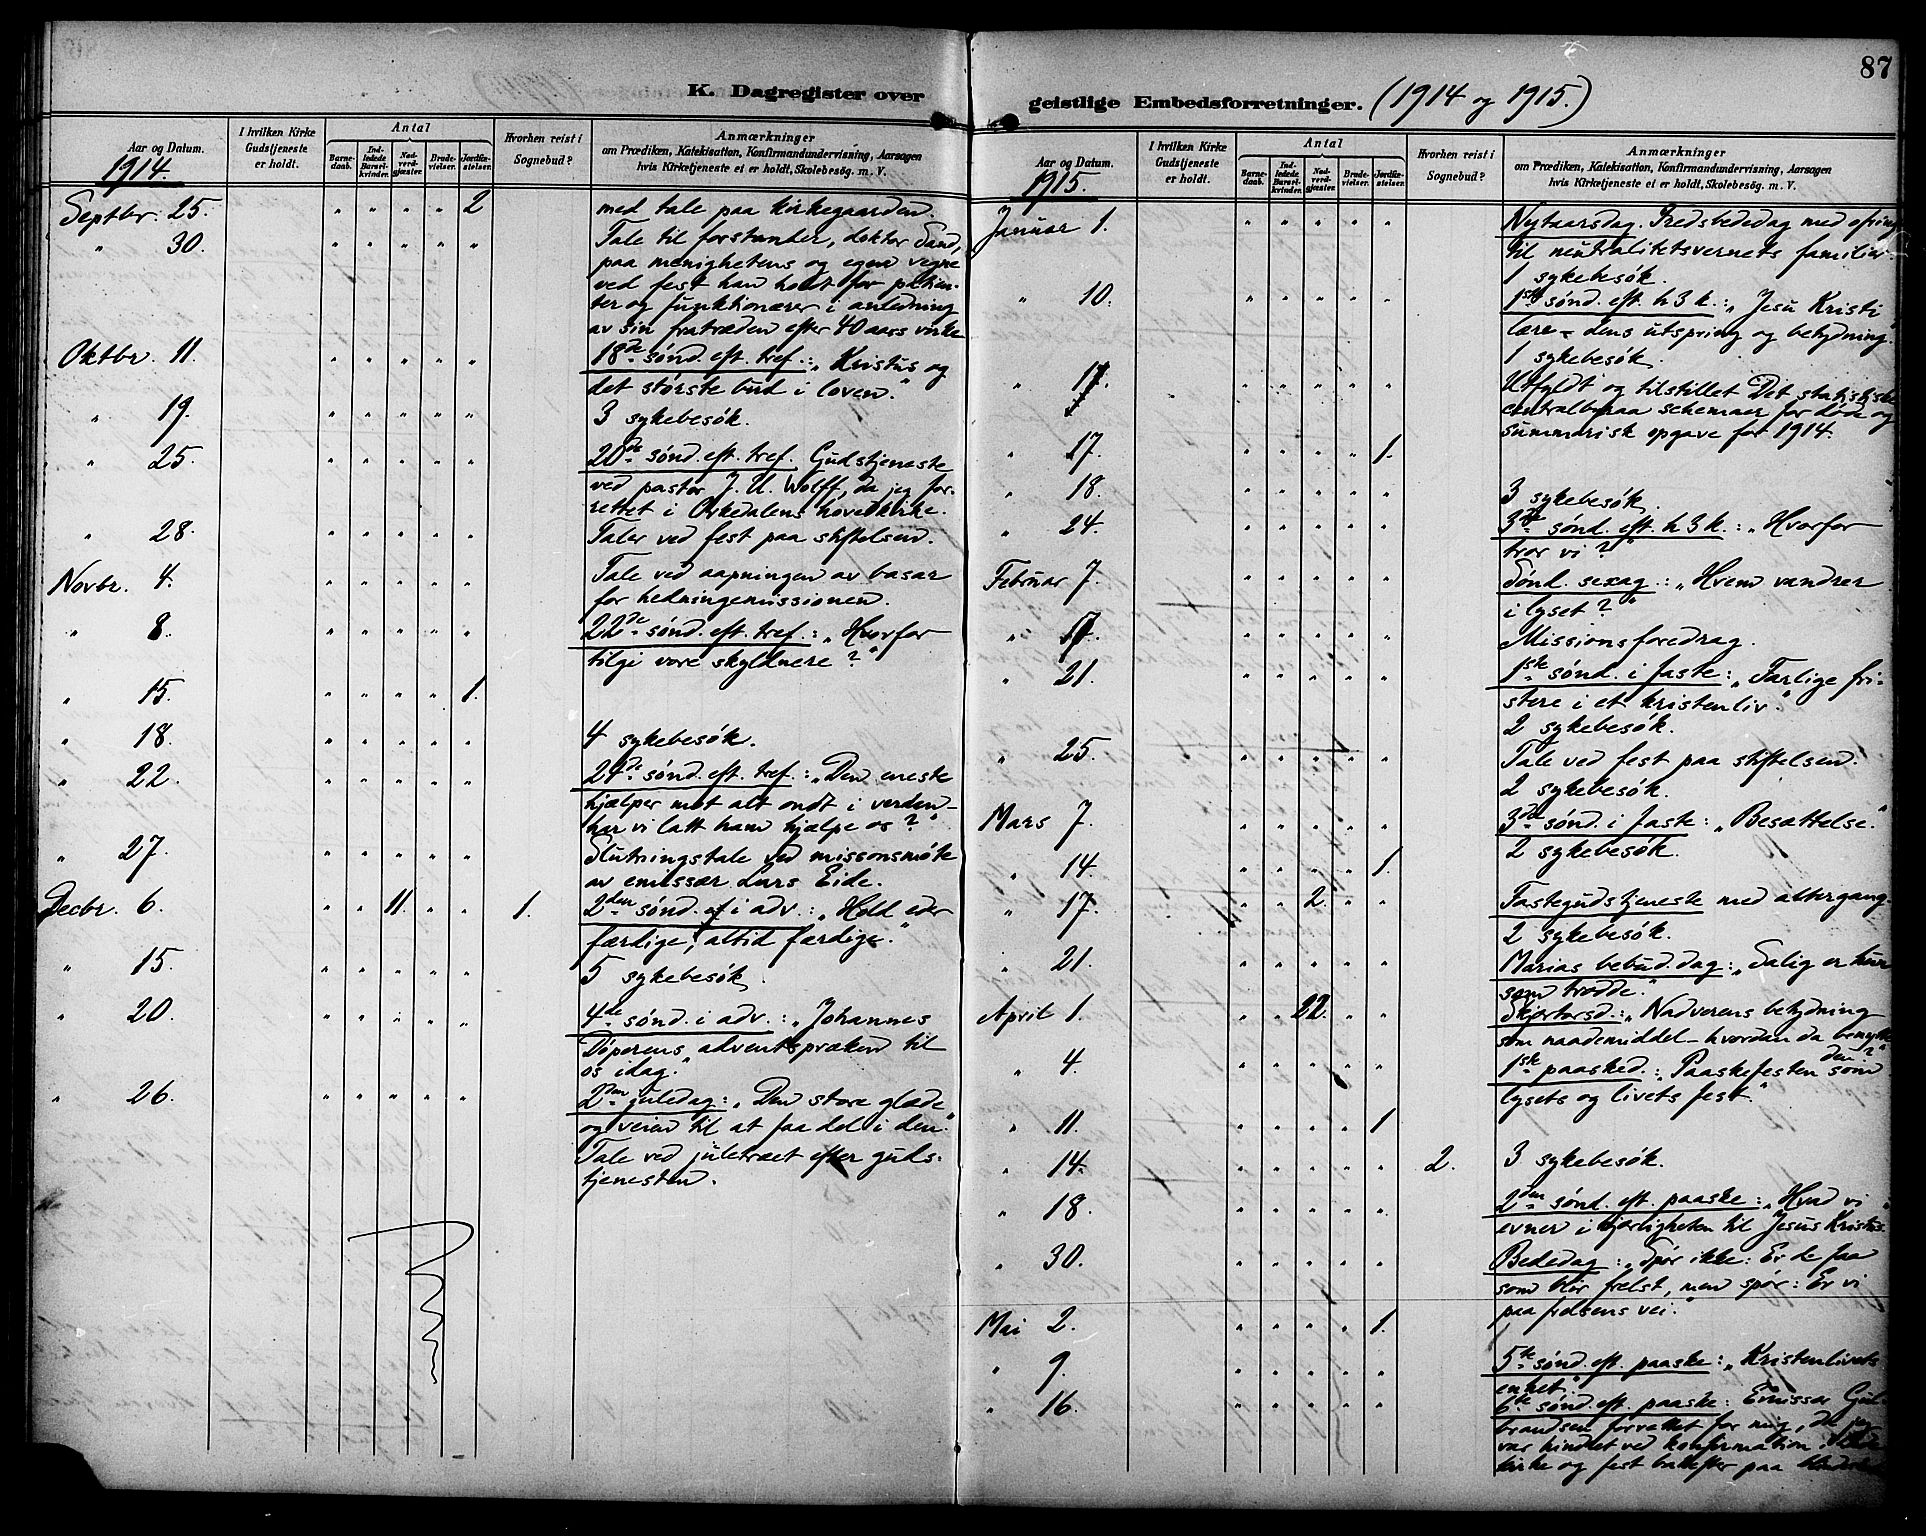 87
K. Dagregister over
geistlige Embedsforretninger. (1914 og 1915.)
Aar og Datum.
1914.
I hvilken Kirke
Gudstjeneste
er holdt.
Antal
Barne-
daab.
Ind-
ledede
Barsel-
kvinder.
Nad-
verd-
gjæster.
Brude-
vielser.
Jordfæ-
stelser.
Hvorhen reist i
Sognebud?
Anmærkninger
om Prædiken, Katekisation, Konfirmandundervisning, Aarsagen
hvis Kirketjeneste ei er holdt, Skolebesøg. m. V.
Septbr. 25. " " " " 2 med tale paa kirkegaarden.
" 30. " " " " " Tale til forstander, doktor Sand,
paa menighetens og egne vegne
ved fest han holdt for patien-
ter og funktionærer i anledning
av sin fratræden efter 40 aars virke
Oktbr. 11. " " " " " 18de sønd. eft. tref.: "Kristus og
det største bud i loven."
" 19. " " " " " 3 sykebesøk.
" 25. " " " " " 20de sønd. eft. tref. Gudstjeneste
ved pastor J. U. Wolff, da jeg for-
rettet i Orkedalens hovedkirke.
" 28. " " " " " Taler ved fest paa stiftelsen.
Novbr. 4. " " " " " Tale ved aapningen av basar
for hedningemissionen.
" 8. " " " " " 22de sønd. eft. tref.: "Hvorfor
tilgi vore skyldnere?"
" 15. " " " " 1.
" 18. " " " " " 4 sykebesøk.
" 22. " " " " " 24de sønd. eft. tref.: "Den eneste
hjælper mot alt ondt i verden –
har vi latt ham hjælpe os?"
" 27. " " " " " Slutningstale ved missonsmøte
av emissær Lars Eide.
Decbr. 6. " " 11. " " 1. 2den sønd. i adv.: "Hold eder
færdige, altid færdige."
" 15. " " " " " 5 sykebesøk.
" 20. " " " " " 4de sønd. i adv.: "Johannes
Døperens adventspræken til
os idag."
" 26. " " " " " 2den juledag: "Den store glæde
og veien til at faa del i den."
Tale ved juletræet efter guds-
tjenesten.
Aar og Datum.
1915.
I hvilken Kirke
Gudstjeneste
er holdt.
Antal
Barne-
daab.
Ind-
ledede
Barsel-
kvinder.
Nad-
verd-
gjæster.
Brude-
vielser.
Jordfæ-
stelser.
Hvorhen reist i
Sognebud?
Anmærkninger
om Prædiken, Katekisation, Konfirmandundervisning, Aarsagen
hvis Kirketjeneste ei er holdt, Skolebesøg. m. V.
Januar 1. " " " " " Nytaarsdag. Fredsbededag med ofring
til neutralitetsvernets familier
1 sykebesøk.
" 10. " " " " " 1ste sønd. eft. h 3 k.: "Jesu Kristi
lære – dens utspring og betydning."
1 sykebesøk.
" " " " " " Utfyldt og tilstillet Det statistiske
centralbyraa schemaer for døde og
summarisk opgave for 1914.
" 17. " " " " 1.
" 18. " " " " " 3 sykebesøk.
" 24. " " " " " 3die sønd. eft. h 3 k.: "Hvorfor
tror vi?"
Februar 7. " " " " " Sønd. sexag.: "Hvem vandrer
i lyset?"
" " " " " " Missionsforedrag.
" 21. " " " " " 1ste sønd. i faste: "Farlige fri-
stere i et kristenliv."
2 sykebesøk.
" 25. " " " " " Tale ved fest paa stiftelsen.
2 sykebesøk.
Mars 7. " " " " " 3die sønd. i faste: "Besættelse."
2 sykebesøk.
" 14. " " " " 1.
" 17. " " 2. " " Fastegudstjeneste med altergang.
2 sykebesøk.
" 21. " " " " " Marias bebud. dag: "Salig er hun
som trodde."
April 1. " " 22. " " Skjærtorsd.: "Nadverens betydning
som naademiddel – hvordan da benytte
den?"
" 4. " " " " " 1ste paasked.: "Paaskefesten som
lysets og livets fest."
" 11. " " " " 1
" 14. " " " " " 2. 3 sykebesøk.
" 18. " " " " " 2den sønd. eft. paaske: "Hvad vi
evner i kjærligheten til Jesus Kristus."
" 30. " " " " " Bededag: "Spør ikke: Er de faa
som blir frelst, men spør: Er vi
paa frelsens vei."
Mai 2. " " " " 1.
" 9. " " " " " 5te sønd. eft. paaske: "Kristenlivets
enhet."
" 16. " " " " " 6te sønd. eft. paaske: Emissær Gul-
brandsen forrettet for mig, da jeg
var hindret ved konfirmation i
kirke og fest bakefter paa